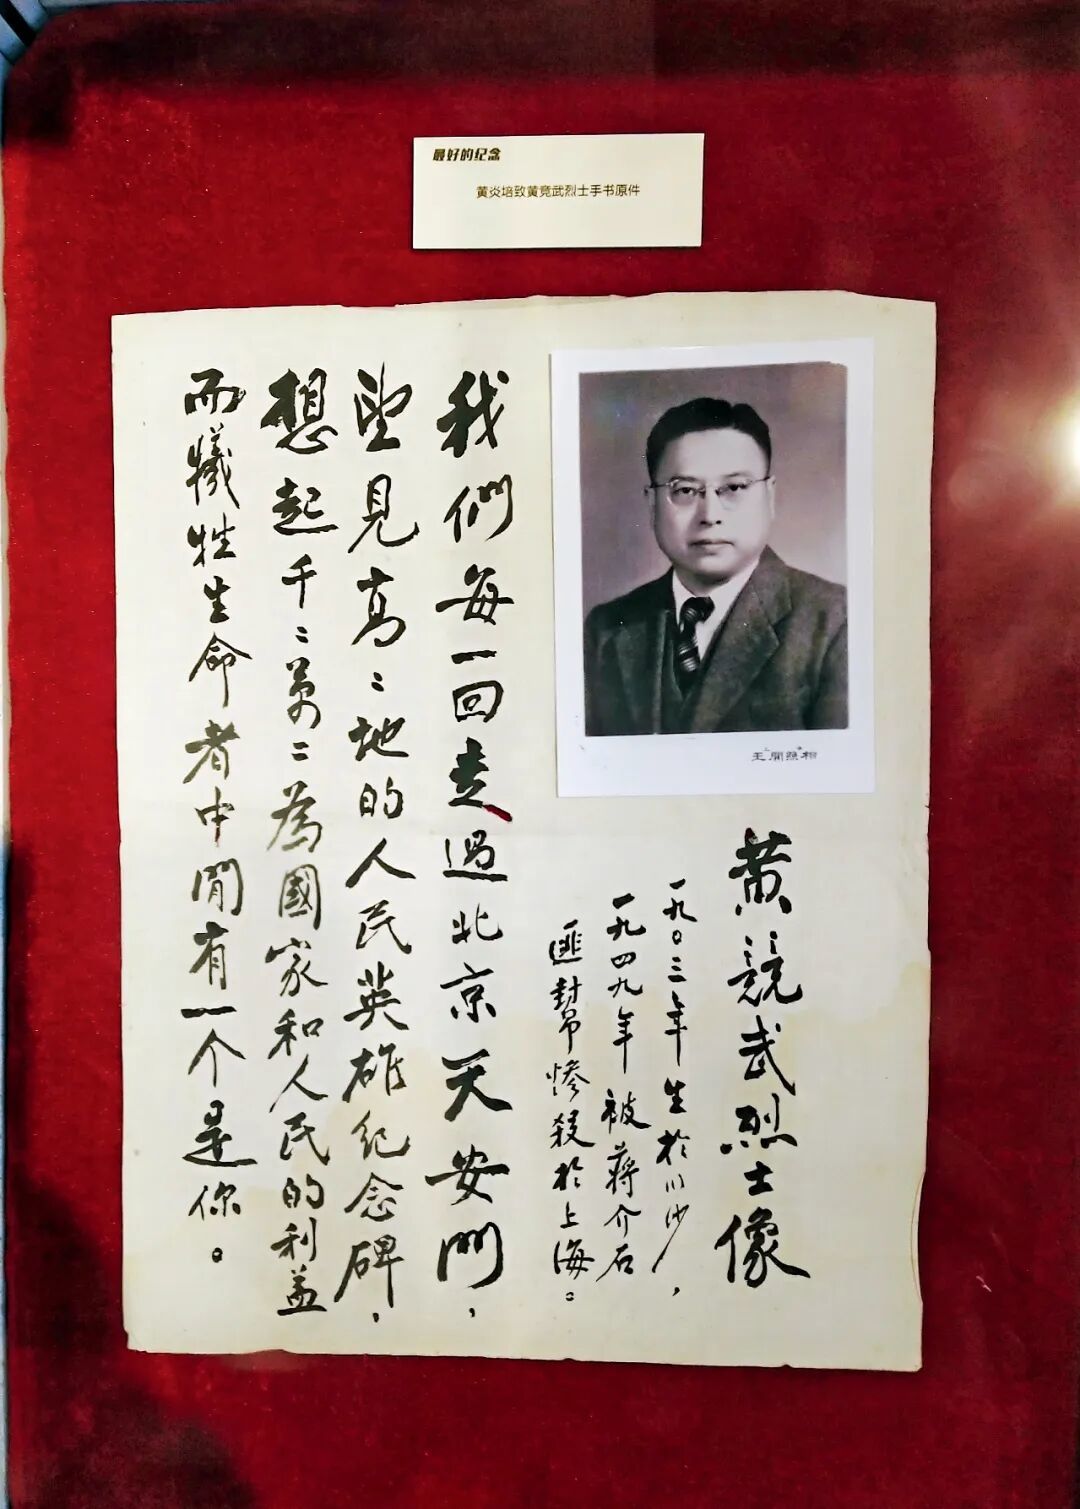 最好的纪念
黄炎培致黄竞武烈士手书原件
王開照相
黃競武烈士像
一九〇三年生於川沙，
一九四九年被蔣介石
匪幫惨殺於上海。
我們每一回走過北京天安門，
望見高〻地的人民英雄纪念碑，
想起千〻萬〻為國家和人民的利益
而犧牲生命者中間有一个是你。